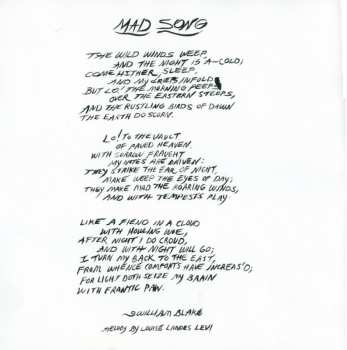 MAD SONG
THE WILD WINDS WEEP
AND THE NIGHT IS A-COLD;
COME HITHER, SLEEP,
AND MY GRIEFS INFOLD
BUT LO! THE MORNING PEEPS
OVER THE EASTERN STEEPS,
AND THE RUSTLING BIRDS OF DAWN
THE EARTH DO SCORN.
LO! TO THE VAULT
OF PAVED HEAVEN,
WITH SORROW FRAUGHT
MY NOTES ARE DRIVEN:
THEY STRIKE THE EAR OF NIGHT,
MAKE WEEP THE EYES OF DAY;
THEY MAKE MAD THE ROARING WINDS,
AND WITH TEMPESTS PLAY
LIKE A FIEND IN A CLOUD
WITH HOWLING WOE,
AFTER NIGHT I DO CROUD,
AND WITH NIGHT WILL GO;
I TURN MY BACK TO THE EAST,
FROM WHENCE COMFORTS HAVE INCREAS'D;
FOR LIGHT DOTH SEIZE MY BRAIN
WITH FRANTIC PAIN.
WILLIAM BLAKE
MELODY BY LOUISE LANDES LEVI